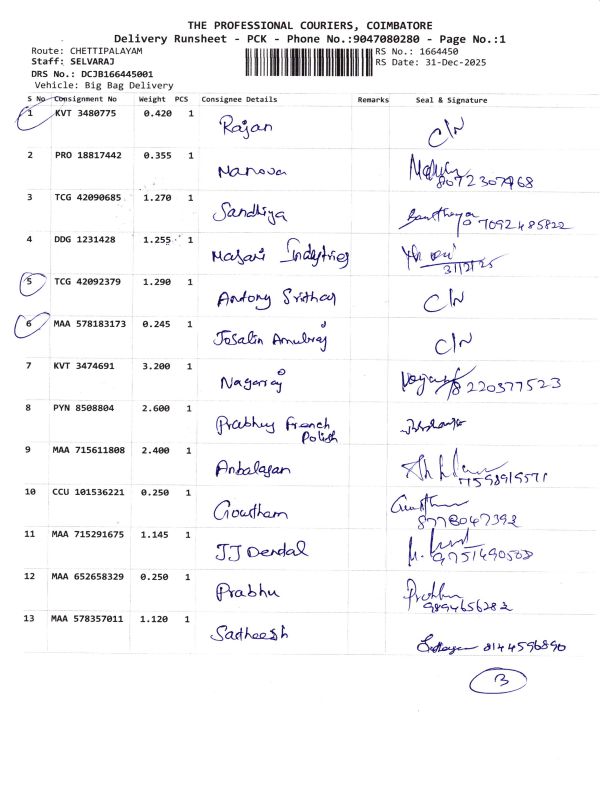 THE PROFESSIONAL COURIERS, COIMBATORE
Delivery Runsheet - PCK - Phone No.:9047080280 - Page No.:1
Route: CHETTIPALAYAM RS No.: 1664450
Staff: SELVARAJ RS Date: 31-Dec-2025
DRS No.: DCJB166445001
Vehicle: Big Bag Delivery
S No Consignment No Weight PCS Consignee Details Remarks Seal & Signature
1 KVT 3480775 0.420 1 Rajan C/N
2 PRO 18817442 0.355 1 Manova 8072307468
3 TCG 42090685 1.270 1 Sandhiya 7092485822
4 DDG 1231428 1.255 1 Masani Industries 31/12/25
5 TCG 42092379 1.290 1 Antony Sridhar C/N
6 MAA 578183173 0.245 1 Josalin Amulraj C/N
7 KVT 3474691 3.200 1 Nagarraj 8220377523
8 PYN 8508804 2.600 1 Prabhu French
Polish
9 MAA 715611808 2.400 1 Anbalagan 7598919571
10 CCU 101536221 0.250 1 Gowtham 8778047392
11 MAA 715291675 1.145 1 JJ Dendal 9751490508
12 MAA 652658329 0.250 1 Prabhu Prabhu 9894656282
13 MAA 578357011 1.120 1 Sadheesh 8144596890
13